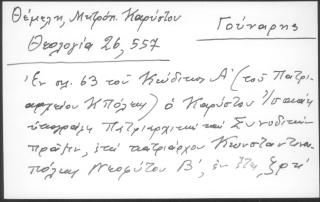 Θέμελη, Μητρόπ. Καρύστου
Γούναρης
Θεολογία 26, 557
Ἐν σελ. 63 τοῦ Κώδικος Α' (τοῦ Πατρι-
αρχείου ΚΠόλεως) ὁ Καρύστου
ὑπογράφει Πατριαρχικὴν καὶ Συνοδικὴν
πρᾶξιν, ἐπὶ πατριάρχου Κωνσταντινου-
πόλεως Νεοφύτου Β', ἐν ἔτει